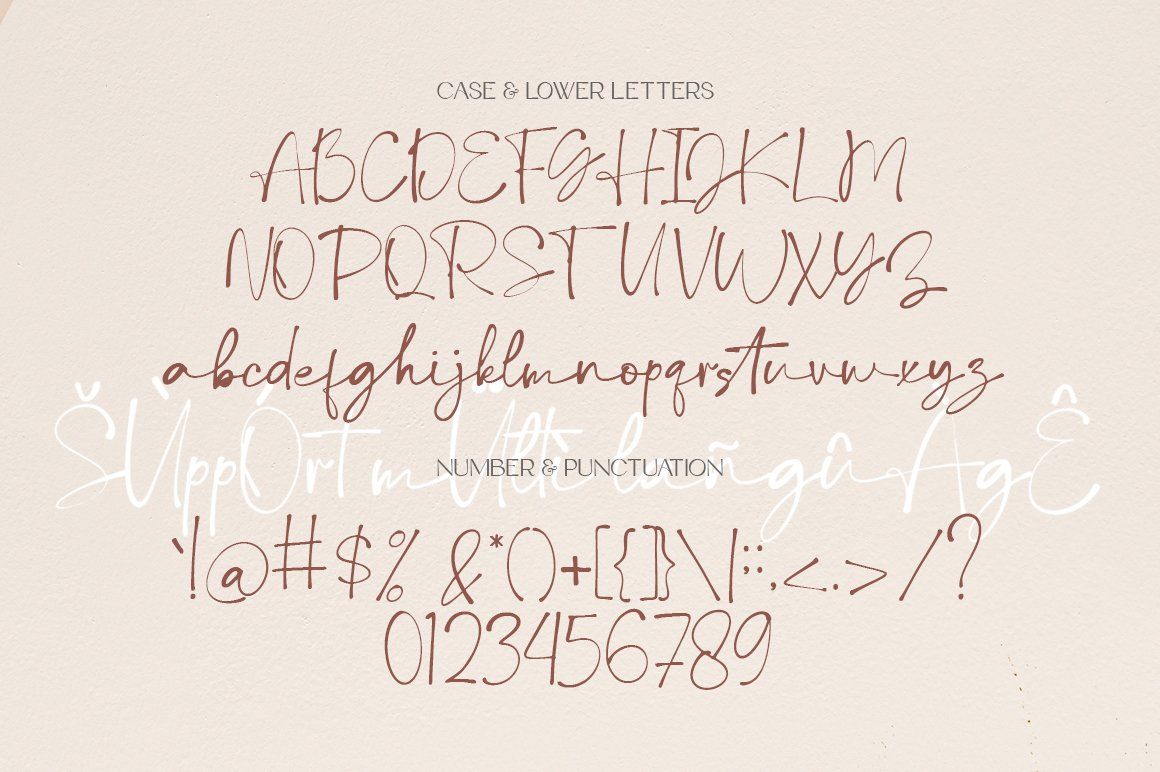 CASE & LOWER LETTERS
ABCDEFGHIJKLM
NOPQRSTUVWXYZ
abcdefghijklmnopqrstuvwxyz
ŠÙppÓrt mÜlti lañgûAgÊ
NUMBER & PUNCTUATION
`!@#$% &*()+[{]}\|;:,<.>/?
0123456789